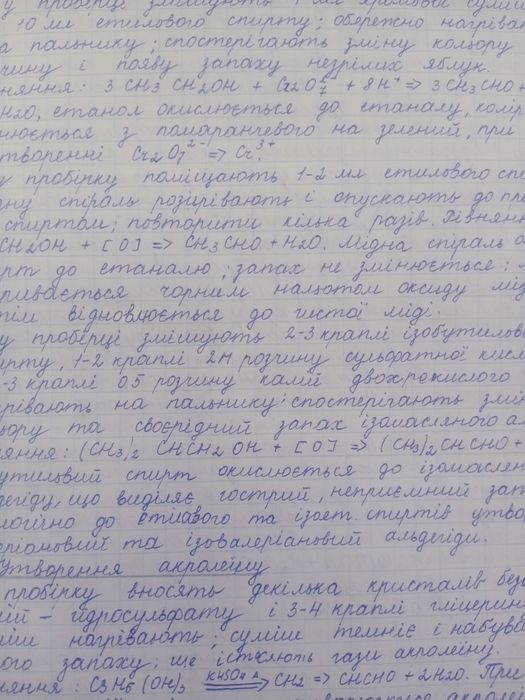 у пробірці змішують 1 мл хромової суміш
10 мл етилового спирту; обережно нагріван
а пальнику; спостерігають зміну кольору
чину і появу запаху незрілих яблук.
няння: 3 CH3 CH2OH + Cr2O7²⁻ + 8H⁺ => 3 CH3CHO +
H2O, етанол окислюється до етаналу, колір
нюється з помаранчевого на зелений, при
творенні Cr2O7²⁻ => Cr³⁺.
у пробірку поміщають 1-2 мл етилового спи
дну спіраль розігрівають і опускають до про
спиртом; повторити кілька разів. Рівнянн
CH2OH + [O] => CH3CHO + H2O. Мідна спіраль о
ирт до етаналю; запах не змінюється:
ривається чорним нальотом оксиду мід
тім відновлюється до чистої міді.
у пробірці змішують 2-3 краплі ізобутилово
ирту, 1-2 краплі 2М розчину сульфатної кисл
-3 краплі 05 розчину калій двохромкислого
рівають на пальнику: спостерігають змін
ьору та своєрідний запах ізомасляного ал
няння: (CH3)2 CHCH2 OH + [O] => (CH3)2 CHCHO +
утиловий спирт окислюється до ізомаслян
дегіду, що виділяє гострий, неприємний зап
логічно до етилового та ізоет. спиртів утвор
еріановий та ізовалеріановий альдегіди.
Утворення акролеїну
пробірку вносять декілька кристалів без
ій - гідросульфату і 3-4 краплі гліцерин
міш нагрівають; суміш темніє і набува
ого запаху; це істклють гази акролеїну.
няння: C3H5(OH)3 KHSO4 Δ CH2 => CHCHO + 2H2O. При